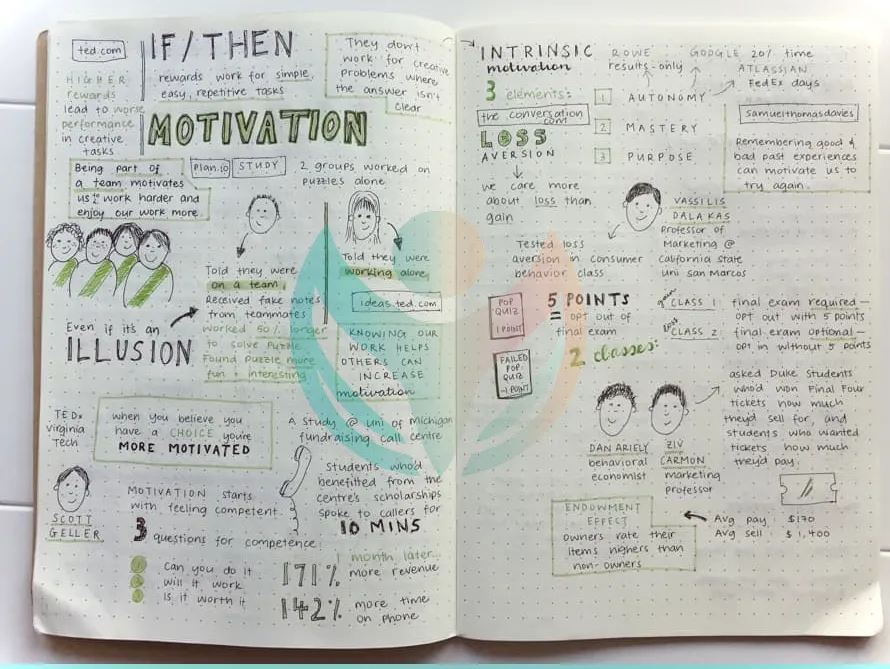 ted.com
IF/THEN
rewards work for simple,
easy, repetitive tasks
They don't
work for creative
problems where
the answer isn't
clear
HIGHER
rewards
lead to worse
performance
in creative
tasks
MOTIVATION
Being part of
a team motivates
us to work harder and
enjoy our work more
plan.io
STUDY
2 groups worked on
puzzles alone
Told they were
on a team
Received fake notes
from teammates
worked 50% longer
to solve puzzle
Found puzzle more
fun + interesting
Told they were
working alone
Even if it's an
ILLUSION
ideas.ted.com
KNOWING OUR
WORK HELPS
OTHERS CAN
INCREASE
motivation
TEDx
virginia
Tech
when you believe you
have a CHOICE you're
MORE MOTIVATED
SCOTT
GELLER
MOTIVATION starts
with feeling competent
3 questions for competence:
1 can you do it
2 will it work
3 is it worth it
A study @ uni of michigan
fundraising call centre
Students who'd
benefitted from the
centre's scholarships
spoke to callers for
10 MINS
1 month later...
171% more revenue
142% more time
on phone
INTRINSIC
motivation
3 elements:
1 AUTONOMY
2 MASTERY
3 PURPOSE
ROWE
results-only
GOOGLE 20% time
ATLASSIAN
FedEx days
the conversation
.com
LOSS
AVERSION
we care more
about loss than
gain
samuelthomasdavies
Remembering good &
bad past experiences
can motivate us to
try again.
VASSILIS
DALAKAS
Professor of
Marketing @
california state
uni san marcos
Tested loss
aversion in consumer
behavior class
POP
QUIZ
1 POINT
FAILED
POP
QUIZ
-1 POINT
5 POINTS
= opt out of
final exam
2 classes:
gain CLASS 1: final exam required —
opt out with 5 points
loss CLASS 2: final exam optional —
opt in without 5 points
DAN ARIELY
behavioral
economist
ZIV
CARMON
marketing
professor
asked Duke Students
who'd won Final Four
tickets how much
they'd sell for, and
students who wanted
tickets how much
they'd pay.
ENDOWMENT
EFFECT
owners rate their
items highers than
non-owners
Avg pay: $170
Avg sell: $1,400